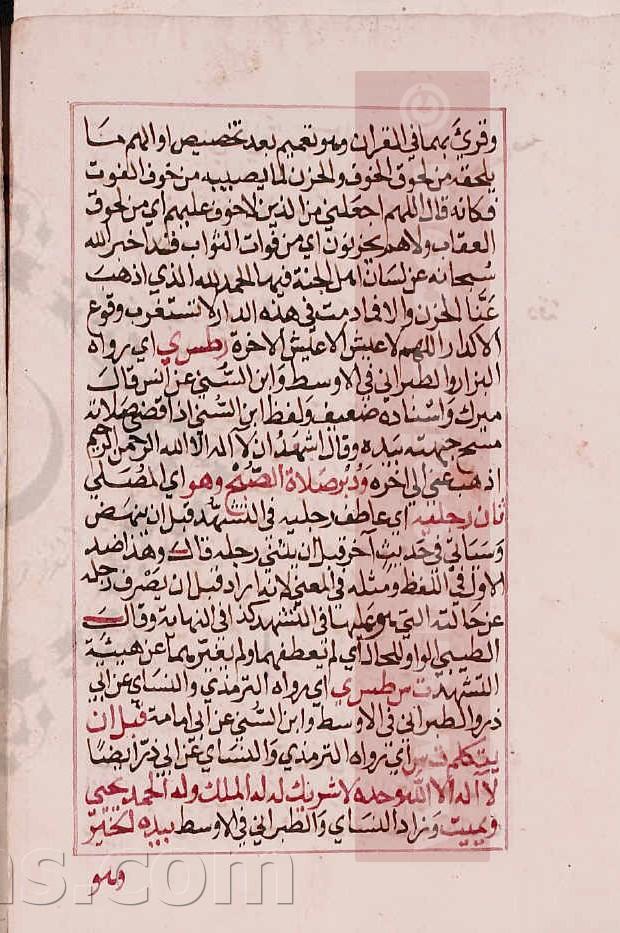 وقرئ بهما في القران وهو تعميم بعد تخصيص او الهم ما
يلحقه من لحوق الخوف والحزن لما يصيبه من خوف الفوت
فكانه قال اللهم اجعلني من الذين لا خوف عليهم اي من لحوق
العقاب ولا هم يحزنون اي من فوات الثواب فقد اخبر الله
سبحانه عن لسان اهل الجنة فيها الحمد لله الذي اذهب
عنا الحزن والا فادمت في هذه الدار لا تستغرب وقوع
الاكدار اللهم لا عيش الا عيش الاخرة رطس ي اي رواه
البزار والطبراني في الاوسط وابن السني عن انس قال
ميرك واسناده ضعيف ولفظ ابن السني اذا قضى صلاته
مسح جبهته بيده وقال اشهد ان لا اله الا الله الرحمن الرحيم
اذهب عني الى اخره ودبر صلاة الصبح وهو اي المصلي
ثان رجليه اي عاطف رجليه في التشهد قبل ان ينهض
وسياتي في حديث آخر قبل ان يثني رجله قال وهذا ضد
الاول في اللفظ ومثله في المعنى لانه اراد قبل ان يصرف رجله
عن حالته التي هو عليها في التشهد كذا في النهاية وقال
الطيبي الواو للحال اي لم يعطفهما ولم يغيرهما عن هيئة
التشهد ت س طس ي اي رواه الترمذي والنساي عن ابي
ذر والطبراني في الاوسط وابن السني عن ابي امامة قبل ان
يتكلم ت س اي رواه الترمذي والنساي عن ابي ذر ايضا
لا اله الا الله وحده لا شريك له له الملك وله الحمد يحيي
ويميت وزاد النساي والطبراني في الاوسط بيده الخير
وهو
ns.com